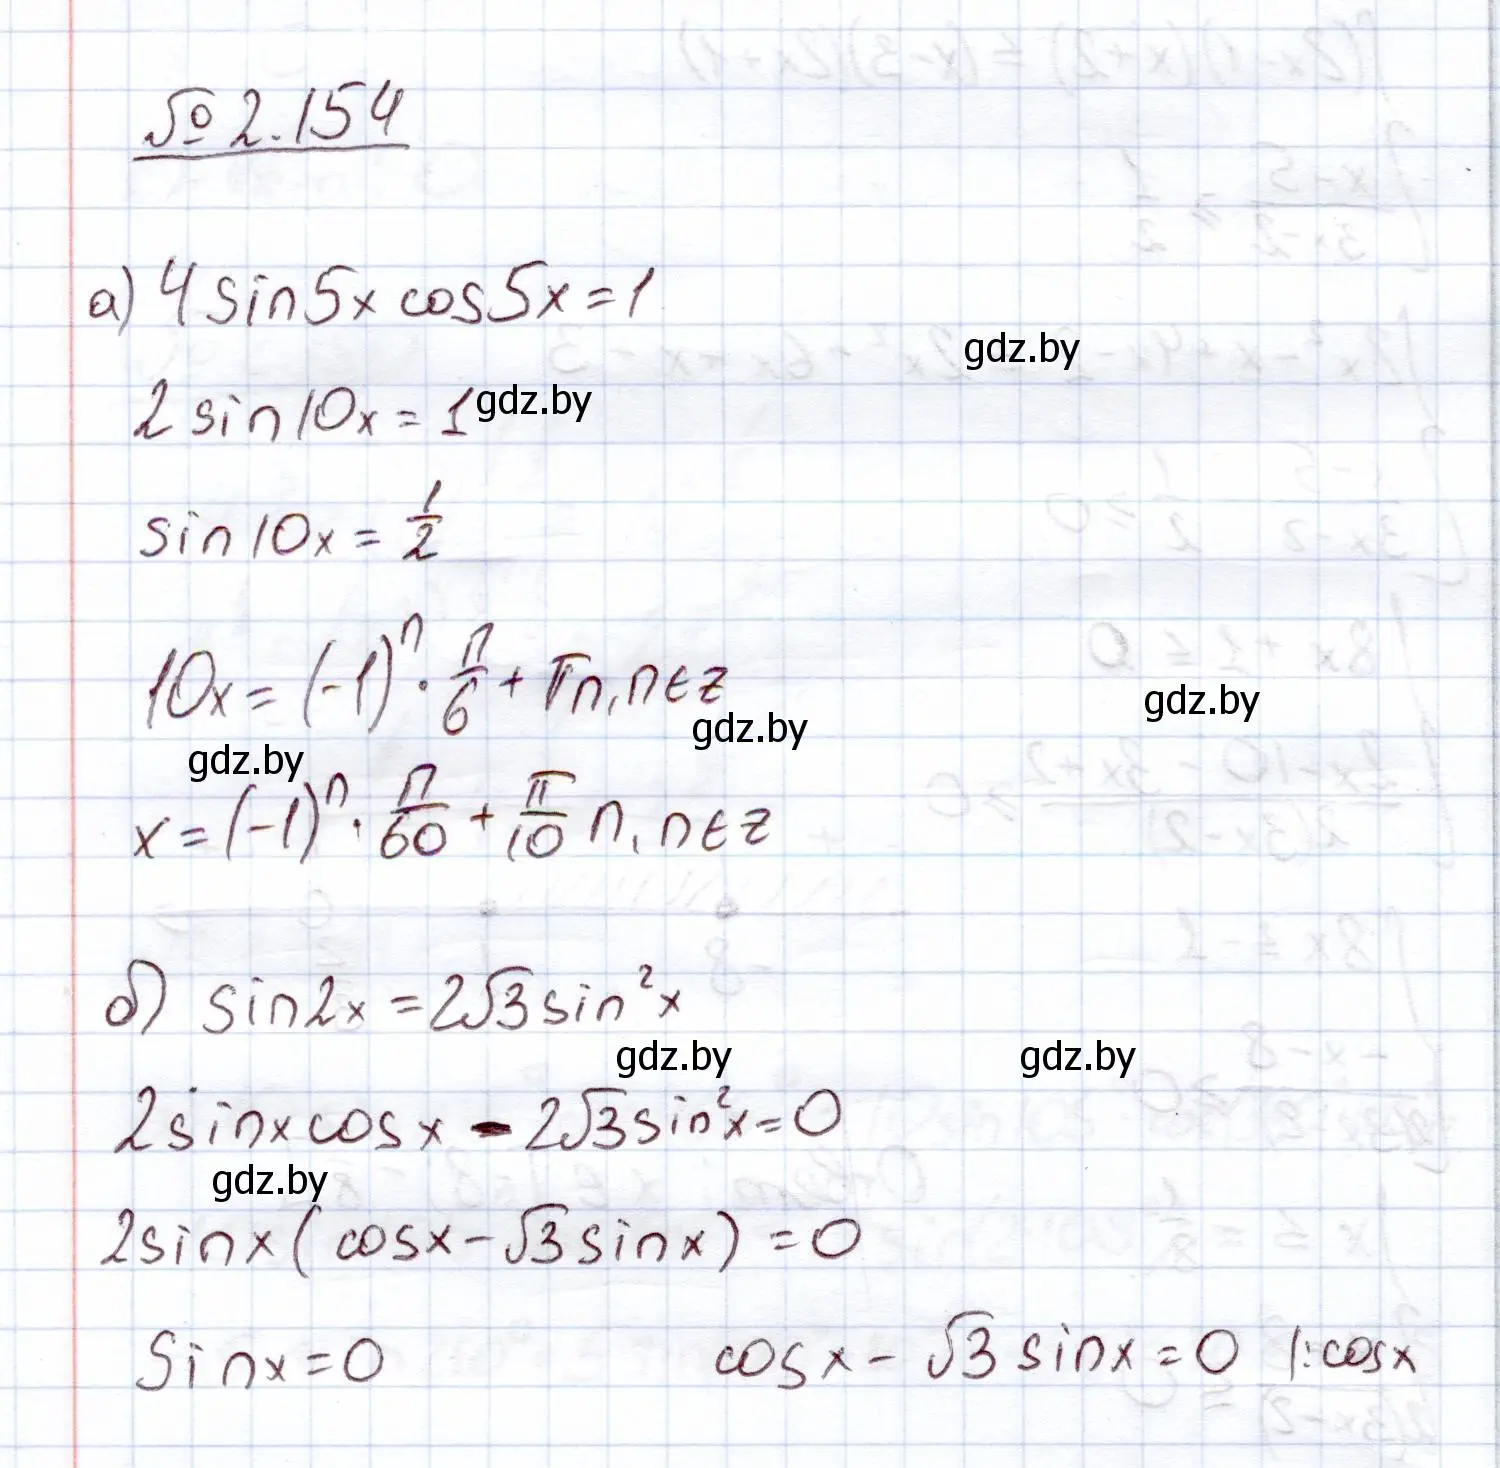 № 2.154
а) 4 sin5x cos5x = 1
gdz.by
2 sin10x = 1 gdz.by
sin10x = 1/2
10x = (-1)^n · π/6 + πn, n ∈ z
gdz.by
gdz.by
gdz.by
x = (-1)^n · π/60 + π/10 n, n ∈ z
б) sin2x = 2√3 sin²x
gdz.by gdz.by
2sinx cosx - 2√3 sin²x = 0
gdz.by
2sinx (cosx - √3 sinx) = 0
sinx = 0 cosx - √3 sinx = 0 |: cosx